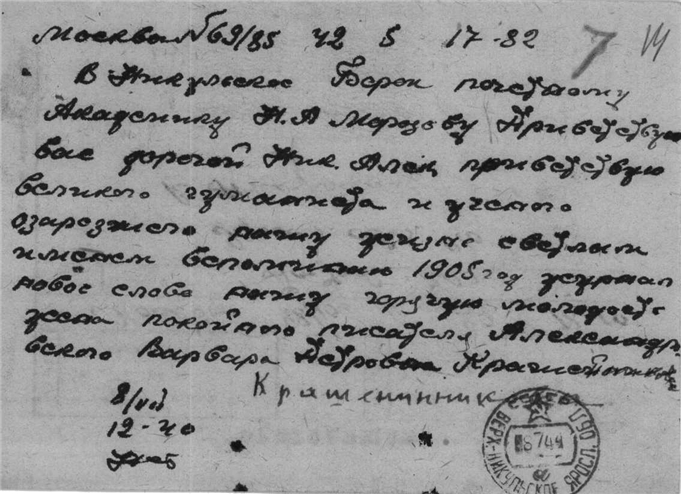 Москва №69/85 42 5 17-32
7 14
В Никульское Борок почетному
Академику Н.А Морозову Приветствую
вас дорогой Ник. Алек приветствую
великого гуманиста и ученого
озарезшего нашу жизнь светлым
именем вспоминаю 1905 год журнал
новое слово нашу горячую молодость
жена покойного писателя Александр
вского Варвара Петровна
Крашенинник
8/VII
12-40
ВЕРХ-НИКУЛЬСКОЕ ЯРОСЛ. ОБЛ
8749